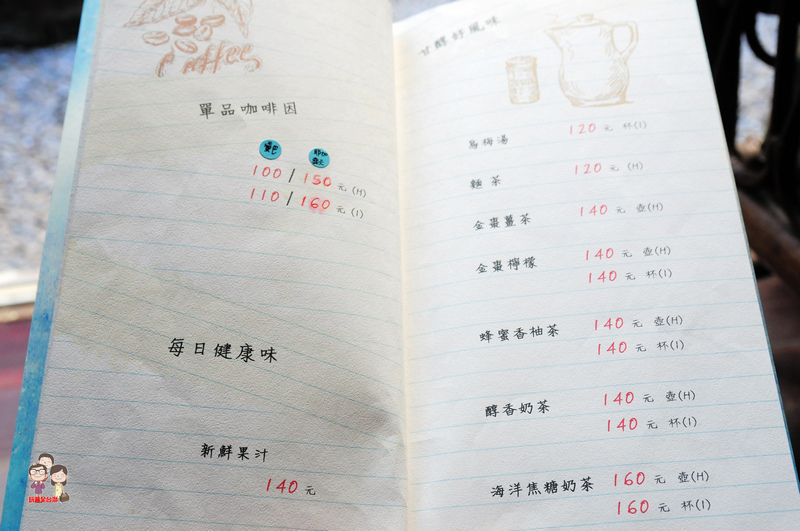 Coffee
單品咖啡因
100/150元(H)
110/160元(I)
每日健康味
新鮮果汁
140元
甘醇好風味
烏梅湯 120元 杯(I)
麵茶 120元 (H)
金棗薑茶 140元 壺(H)
金棗檸檬 140元 壺(H)
140元 杯(I)
蜂蜜香柚茶 140元 壺(H)
140元 杯(I)
醇香奶茶 140元 壺(H)
140元 杯(I)
海洋焦糖奶茶 160元 壺(H)
160元 杯(I)